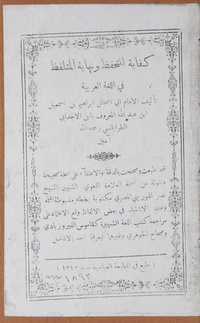 كفاية المتحفظ ونهاية المتلفظ
في اللغة العربية
تأليف الامام ابي اسحاق ابراهيم بن اسمعيل
ابن عبد الله المعروف بابن الاجدابي
الطرابلسي رحمه الله
آمين
قد طبعت وصححت بالدقة والاعتناء على نسخة صحيحة
منقولة من نسخة العلامة اللغوي الشهير الشيخ
نصر الهوريني المصري مكتوبة بخطه مضبوطة
وعند الاشتباه في بعض الالفاظ وقع الاعتناء
مراجعة كتب اللغة الشهيرة كقاموس الفيروزبادي
وصحاح الجوهري وغيرها بمعرفة احد الافاضل
طبع في المطبعة